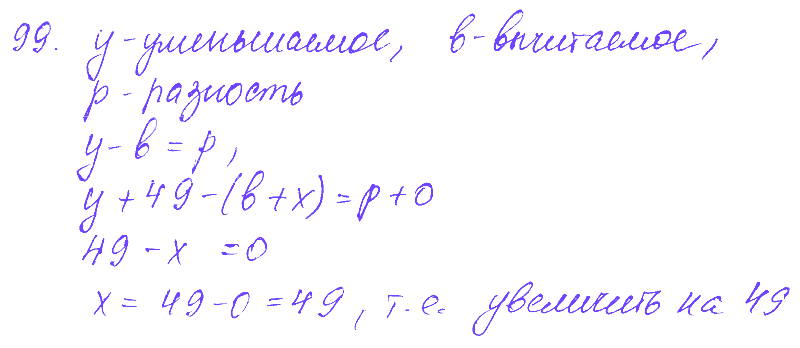 99. у - уменьшаемое, в - вычитаемое,
р - разность
у - в = р,
у + 49 - (в + х) = р + 0
49 - х = 0
х = 49 - 0 = 49, т.е. увеличить на 49